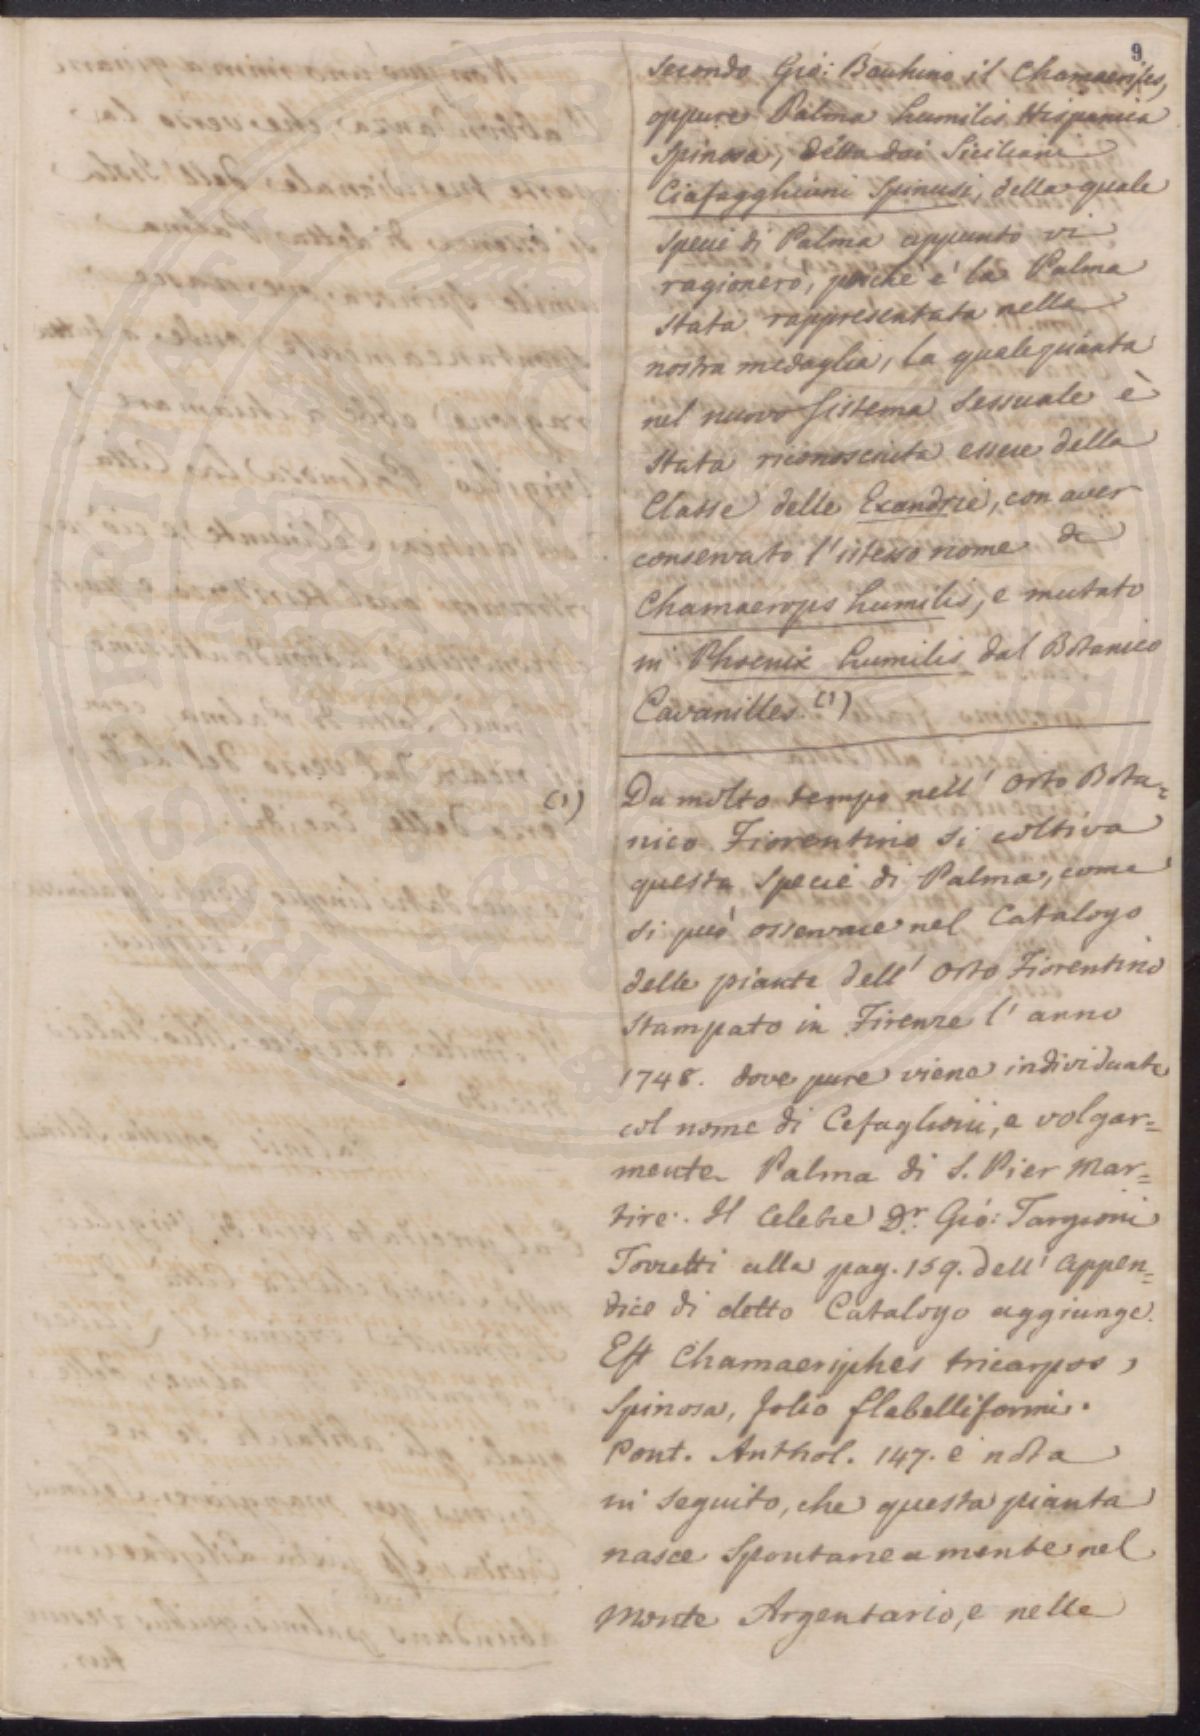 9
secondo Gio: Bauhino il Chamaeriphes,
oppure Palma humilis Hispanica
spinosa, detta dai Siciliani
Ciafagghiuni Spinusi, della quale
specie di Palma appunto vi
ragionerò, poichè è la Palma
stata rappresentata nella
nostra medaglia, la quale pianta
nel nuovo sistema sessuale è
stata riconosciuta essere della
Classe delle Exandrie, con aver
conservato l'istesso nome di
Chamaerops humilis, e mutato
in Phoenix humilis dal Botanico
Cavanilles. (1)
(1) Da molto tempo nell' Orto Bota=
nico Fiorentino si coltiva
questa specie di Palma, come
si può osservare nel Catalogo
delle piante dell' Orto Fiorentino
stampato in Firenze l' anno
1748. dove pure viene individuata
col nome di Cefaglioni, e volgar=
mente Palma di S. Pier Mar=
tire. Il celebre Dr. Gio: Targioni
Tozzetti alla pag. 159. dell' Appen=
dice di detto Catalogo aggiunge.
Est Chamaeriphes tricarpos,
Spinosa, folio flabelliformi.
Pont. Anthol. 147. e nota
in seguito, che questa pianta
nasce spontaneamente nel
Monte Argentario, e nelle